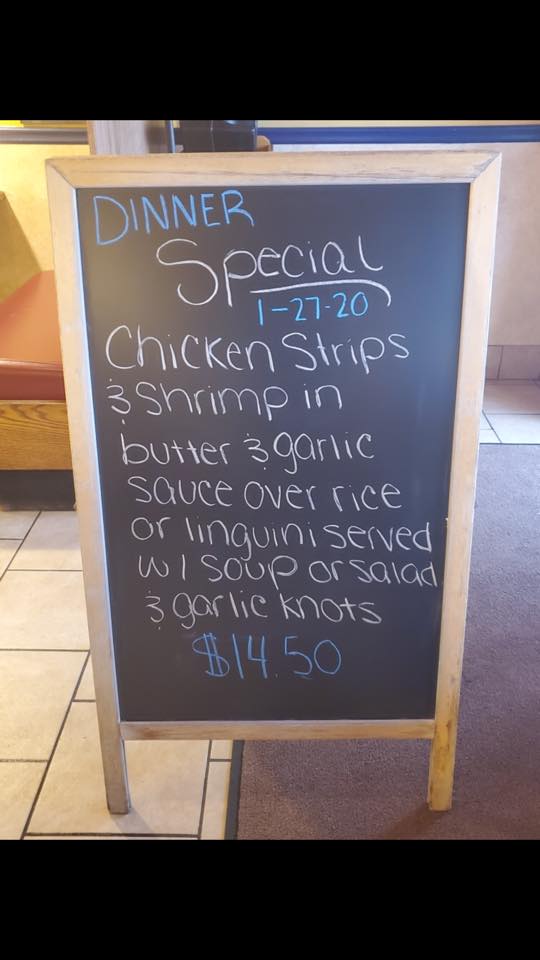 DINNER
Special
1-27-20
Chicken Strips
& Shrimp in
butter & garlic
sauce over rice
or linguini served
w/ soup or salad
& garlic knots
$14.50